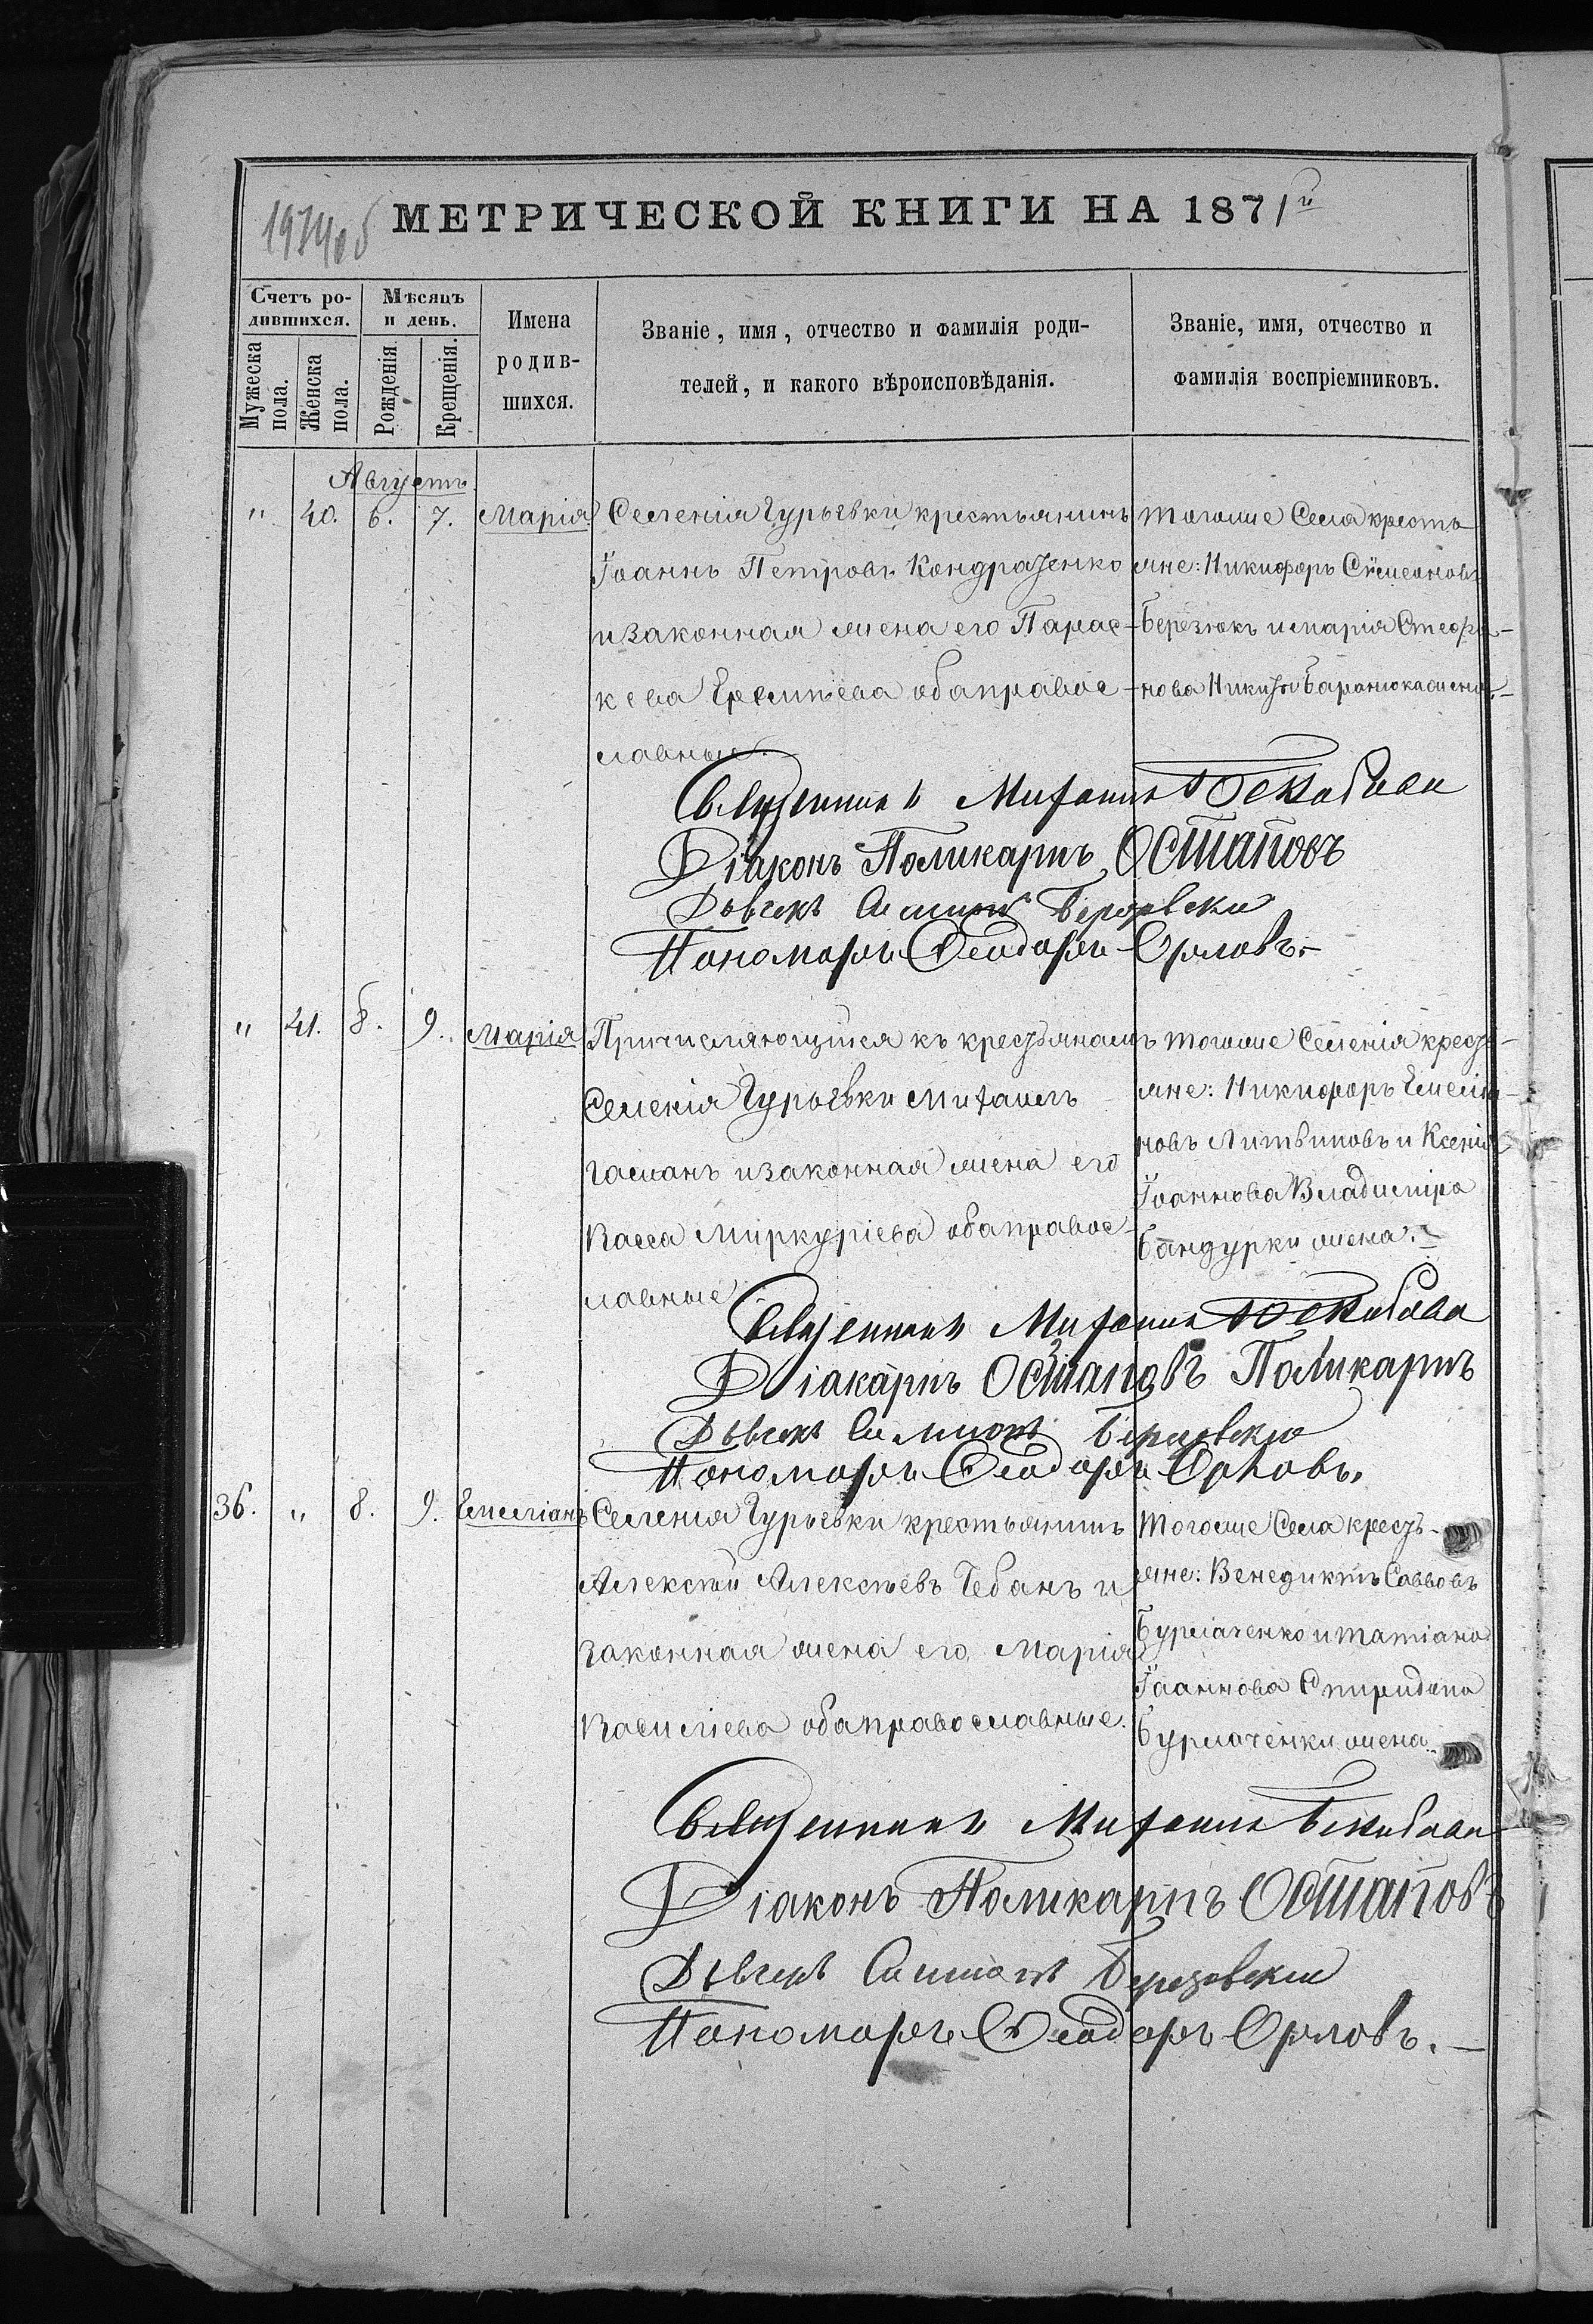 МЕТРИЧЕСКОЙ КНИГИ НА 1871й
Счетъ ро-
дившихся.
Мужеска
пола.
Женска
пола.
Мѣсяцъ
и день.
Рожденія.
Крещенія.
Имена
родив-
шихся.
Званіе, имя, отчество и фамилія роди-
телей, и какого вѣроисповѣданія.
Званіе, имя, отчество и
фамилія воспріемниковъ.
Августъ.
" 40. 6. 7. Марія
Селенія Гурьевки крестьянинъ
Іоаннъ Петровъ Кондратенко
и законная жена его Парас-
кева Ереміева оба правос-
лавные.
Тогоже Села кресть
яне: Никифоръ Симеоновъ
Березюкъ и Марія Стефа-
нова Никиты Баранюка жена.-
Священникъ Михаилъ
Діаконъ Поликарпъ Остаповъ
Дьячекъ Симеонъ Березовскій
Пономарь Ѳеодоръ Орловъ.-
" 41. 8. 9. Марія
Причисляющійся къ крестьянамъ
Селенія Гурьевки Михаилъ
и законная жена его
Васса Миркуріева оба правос-
лавные
Тогоже Селенія кресть-
яне: Никифоръ Емелія-
новъ Литвиновъ и Ксенія
Іоаннова Владиміра
Бандурки жена.
Священникъ Михаилъ
Діакарпъ Остаповъ Поликарпъ
Дьячекъ Симеонъ Березовскій
Пономарь Ѳеодоръ Орловъ.
36. " 8. 9. Емеліанъ
Селенія Гурьевки крестьянинъ
Алексѣй Алексѣевъ Чебанъ и
законная жена его Марія
Василіева оба православные.
Тогоже Села кресть-
яне: Венедиктъ Саввовъ
Бурлаченко и Татіана
Іоаннова Спиридона
Бурлаченки жена.
Священникъ Михаилъ
Діаконъ Поликарпъ Остаповъ
Дьячекъ Симеонъ Березовскій
Пономарь Ѳеодоръ Орловъ.-